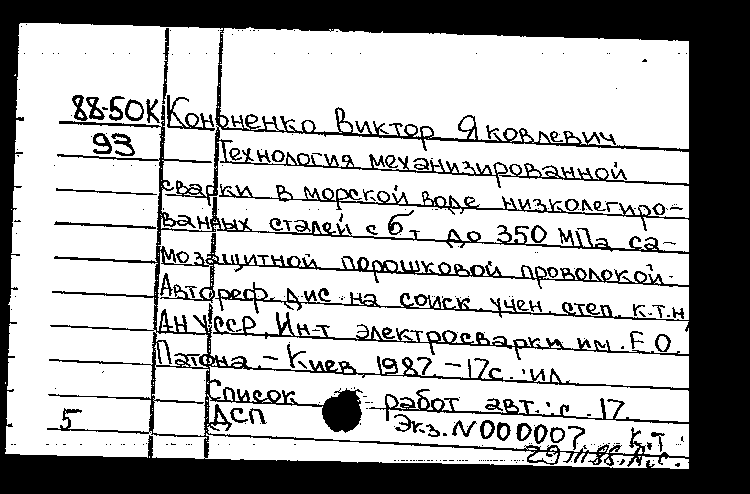 88-50К Кононенко Виктор Яковлевич
93 Технология механизированной
сварки в морской воде низколегиро-
ванных сталей с бт до 350 МПа са-
мозащитной порошковой проволокой.
Автореф. дис. на соиск. учен. степ. к.т.н
АН УССР, Ин-т электросварки им. Е.О.
Патона. – Киев, 1987. – 17 с. : ил.
Список работ авт.: с. 17
5 ДСП Экз. N000007 К.Т.
29 III 88. А.С.